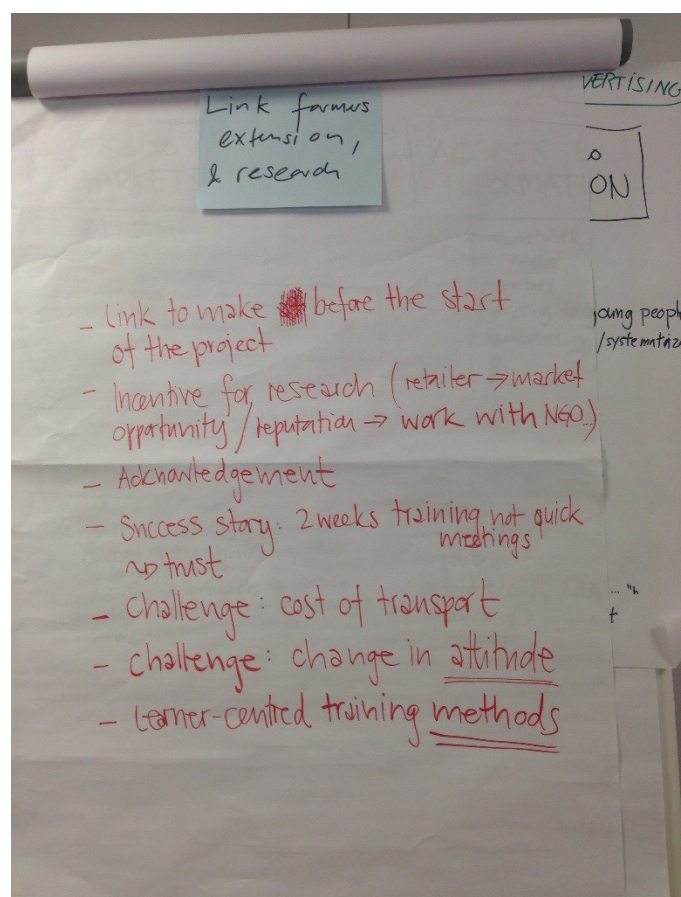 Link farmers
extension,
& research
VERTISING
ON
young peopl
/systematiz
- Link to make before the start
of the project
- Incentive for research (retailer → market
opportunity / reputation → work with NGO...)
- Acknowledgement
- Success story: 2 weeks training not quick
meetings
↳ trust
- Challenge: cost of transport
- Challenge: change in attitude
- Learner-centred training methods